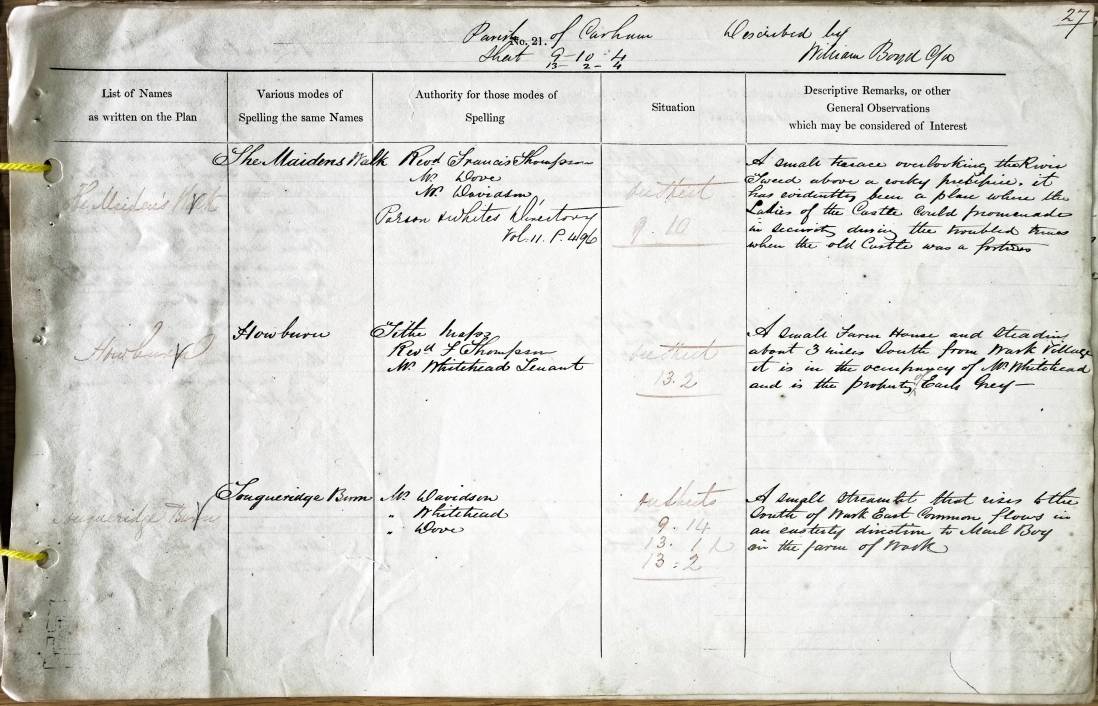 27
Parish of Carham Described by
No. 21.
Sheet 9-10-4 William Boyd C/a
13-2-4
List of Names
as written on the Plan
Various modes of
Spelling the same Names
Authority for those modes of
Spelling
Situation
Descriptive Remarks, or other
General Observations
which may be considered of Interest
The Maidens Walk
The Maidens Walk
Revd Francis Thompson
Mr Dove
Mr Davidson,
Parson & Whites Directory
Vol. 11. P. 496
on sheet
9.10
A small terrace overlooking the River
Tweed above a rocky precipice. it
has evidently been a place where the
Ladies of the Castle could promenade
in security during the troubled times
when the old Castle was a fortress
Howburn
Howburn
Tithe Map
Revd F Thompson
Mr Whitehead Tenant
on sheet
13.2
A small Farm House and Steading
about 3 miles South from Wark Village
it is in the occupancy of Mr Whitehead
and is the property of Earl Grey—
Tongueridge Burn
Tongueridge Burn
Mr Davidson
" Whitehead
" Dove
on sheets
9.14
13.1
13.2
A small streamlet that rises to the
South of Wark East Common flows in
an easterly direction to Maul Bog
in the farm of Wark